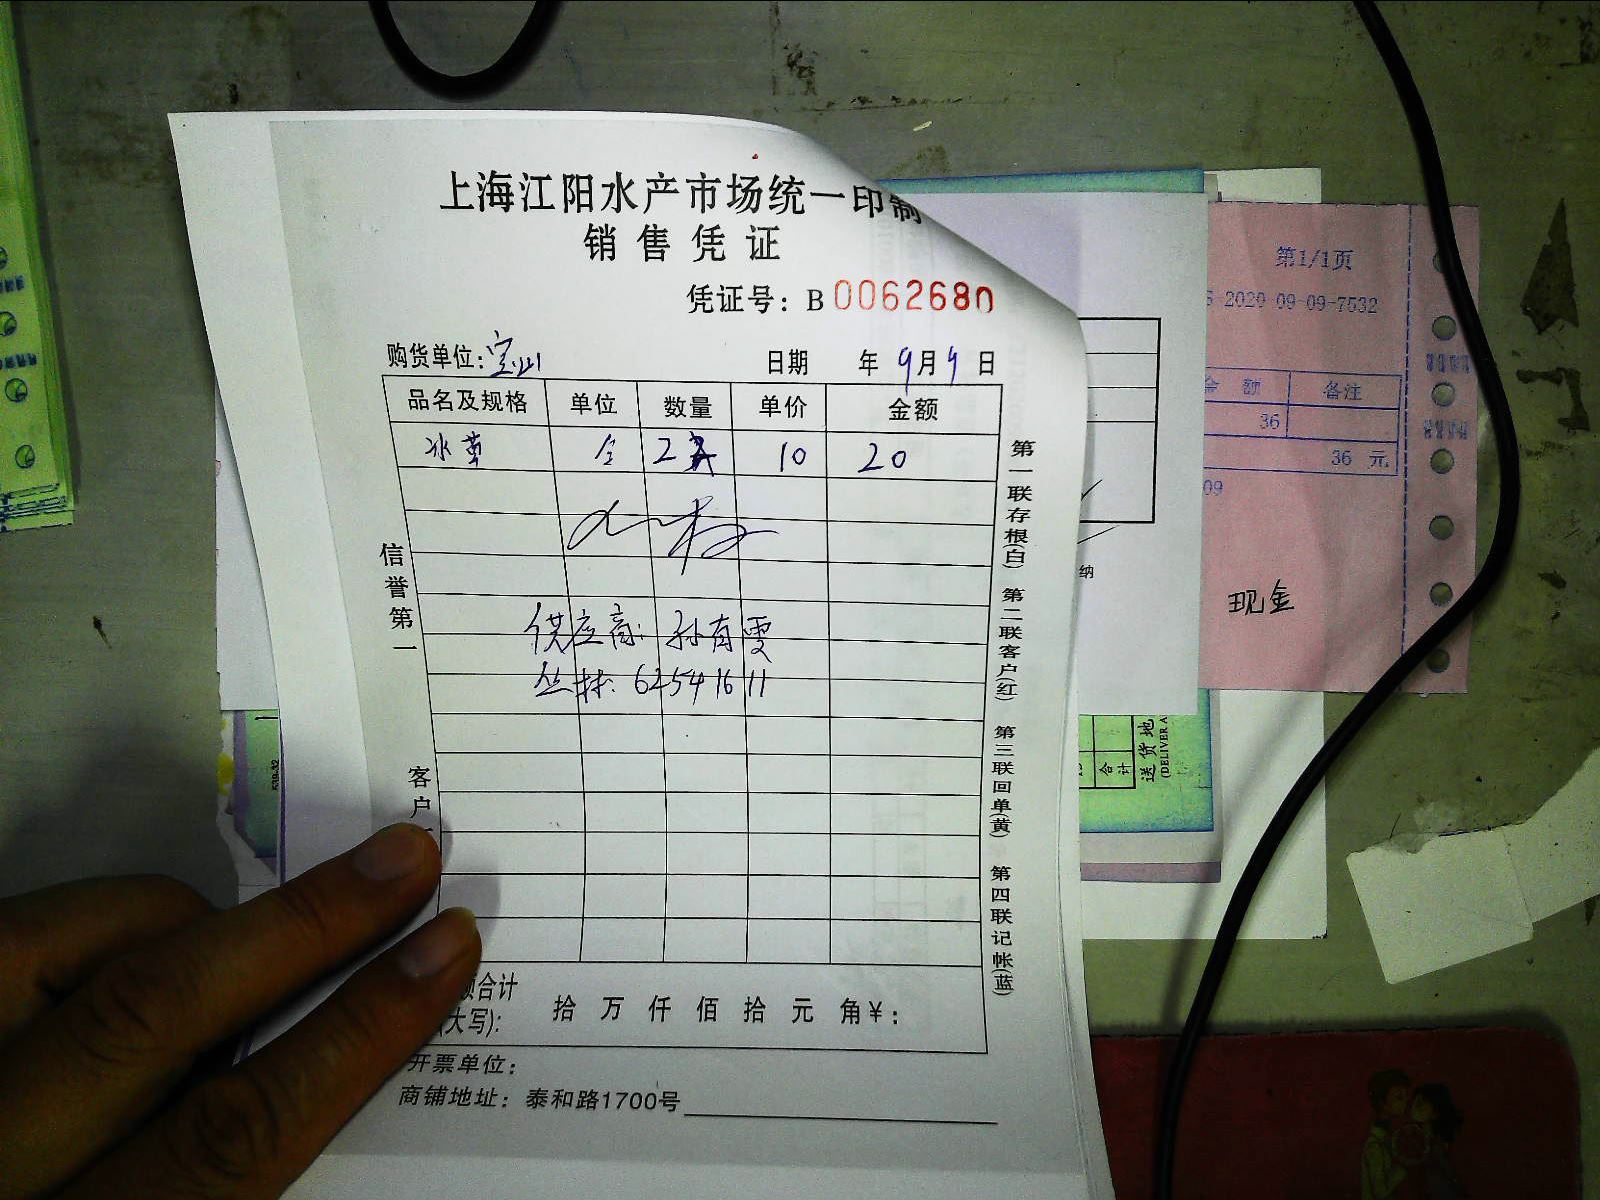 上海江阳水产市场统一印制
销售凭证
凭证号：B 0062680
购货单位：宝山 日期 年 9月9日
品名及规格 单位 数量 单价 金额
2 10 20
供应商：孙有雯
丛林：62541611
信誉第一
客户
第一联存根(白) 第二联客户(红) 第三联回单(黄) 第四联记帐(蓝)
额合计
(大写)： 拾 万 仟 佰 拾 元 角￥：
开票单位：
商铺地址：泰和路1700号
第1/1页
2020 09-09-7532
金 额 备注
36
36 元
09
现金
纳
合计
送货地
(DELIVER A